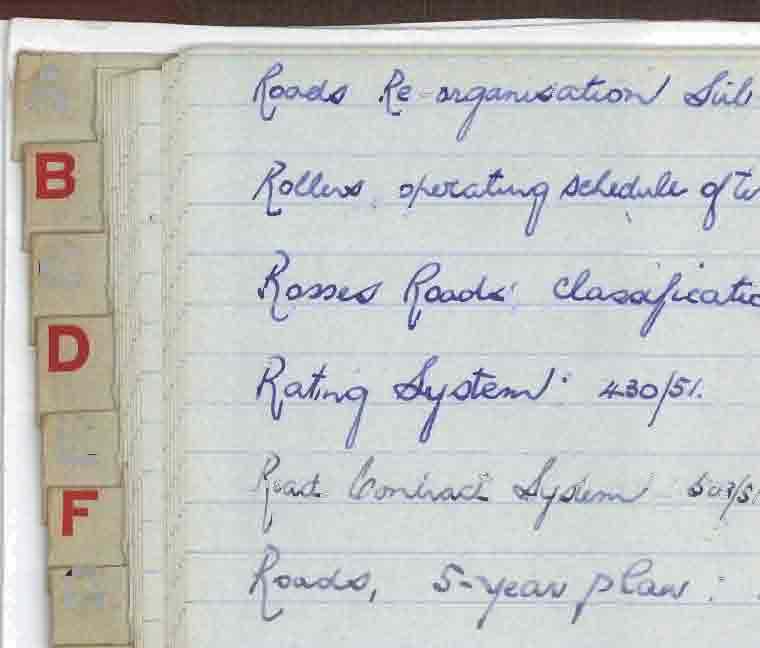 B
D
F
Roads Re-organisation Sub
Rollers, operating schedule of
Rosses Roads: Classificatio
Rating System: 430/51.
Road Contract System 503/51
Roads, 5-year plan: